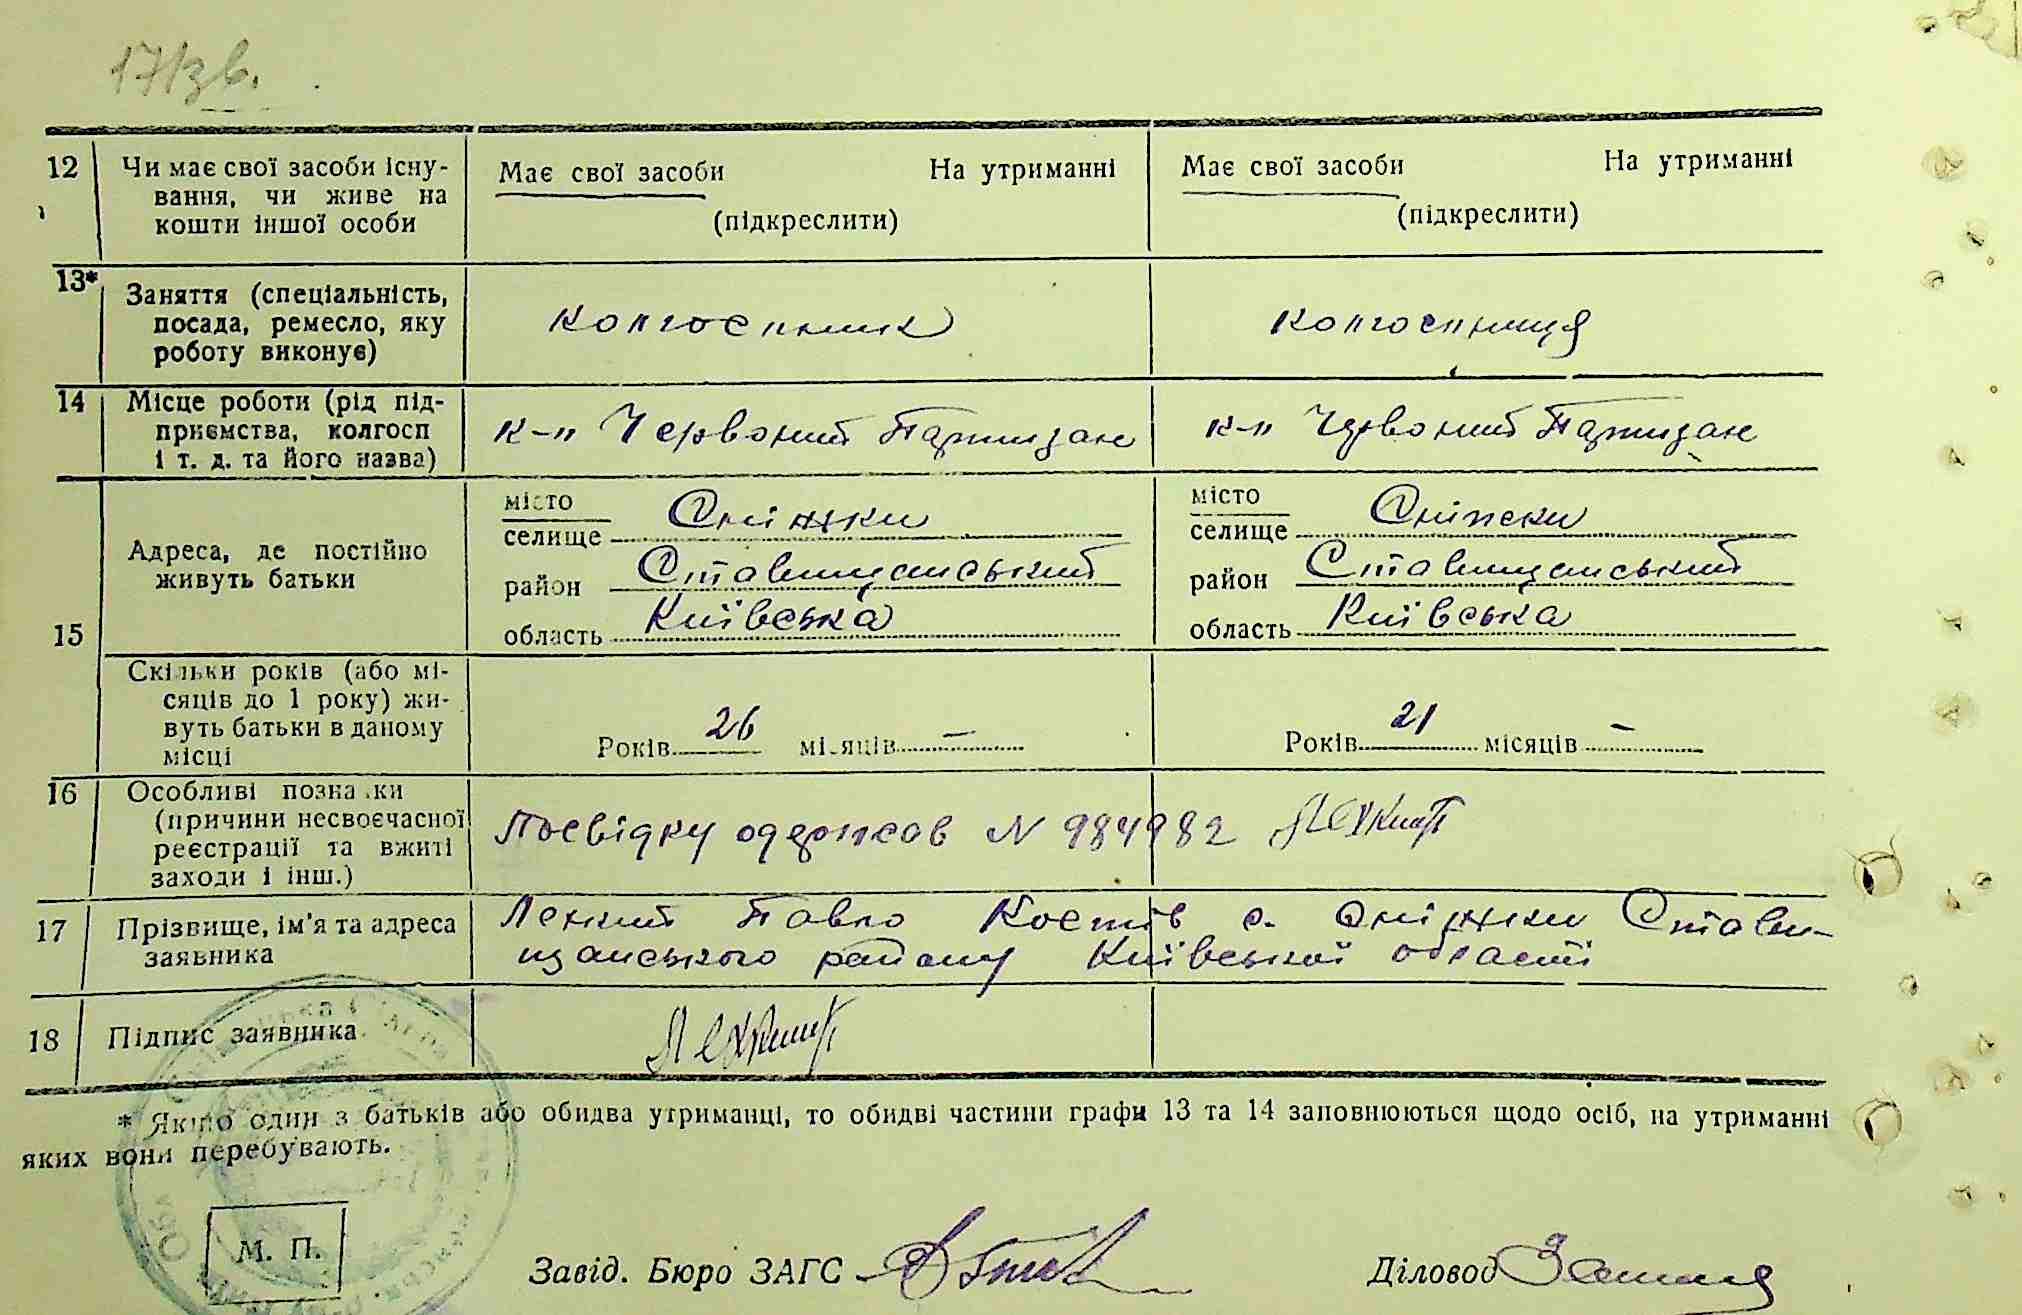 17/зв.
12 Чи має свої засоби існу-
вання, чи живе на
кошти іншої особи
Має свої засоби На утриманні
(підкреслити)
Має свої засоби На утриманні
(підкреслити)
13* Заняття (спеціальність,
посада, ремесло, яку
роботу виконує)
колгоспник
колгоспниця
14 Місце роботи (рід під-
приємства, колгосп
і т. д. та його назва)
к-п Червоний Партизан
к-п Червоний Партизан
15
Адреса, де постійно
живуть батьки
місто
селище Сніжки
район Ставищанський
область Київська
місто
селище Сніжки
район Ставищанський
область Київська
Скільки років (або мі-
сяців до 1 року) жи-
вуть батьки в даному
місці
Років 26 місяців —
Років 21 місяців —
16 Особливі позначки
(причини несвоєчасної
реєстрації та вжиті
заходи і інш.)
Посвідку одержав N 984982
17 Прізвище, ім'я та адреса
заявника
Павло Костів с. Сніжки Стави-
щанського району Київської області
18 Підпис заявника
* Якщо один з батьків або обидва утриманці, то обидві частини графи 13 та 14 заповнюються щодо осіб, на утриманні
яких вони перебувають.
М. П.
Завід. Бюро ЗАГС
Діловод